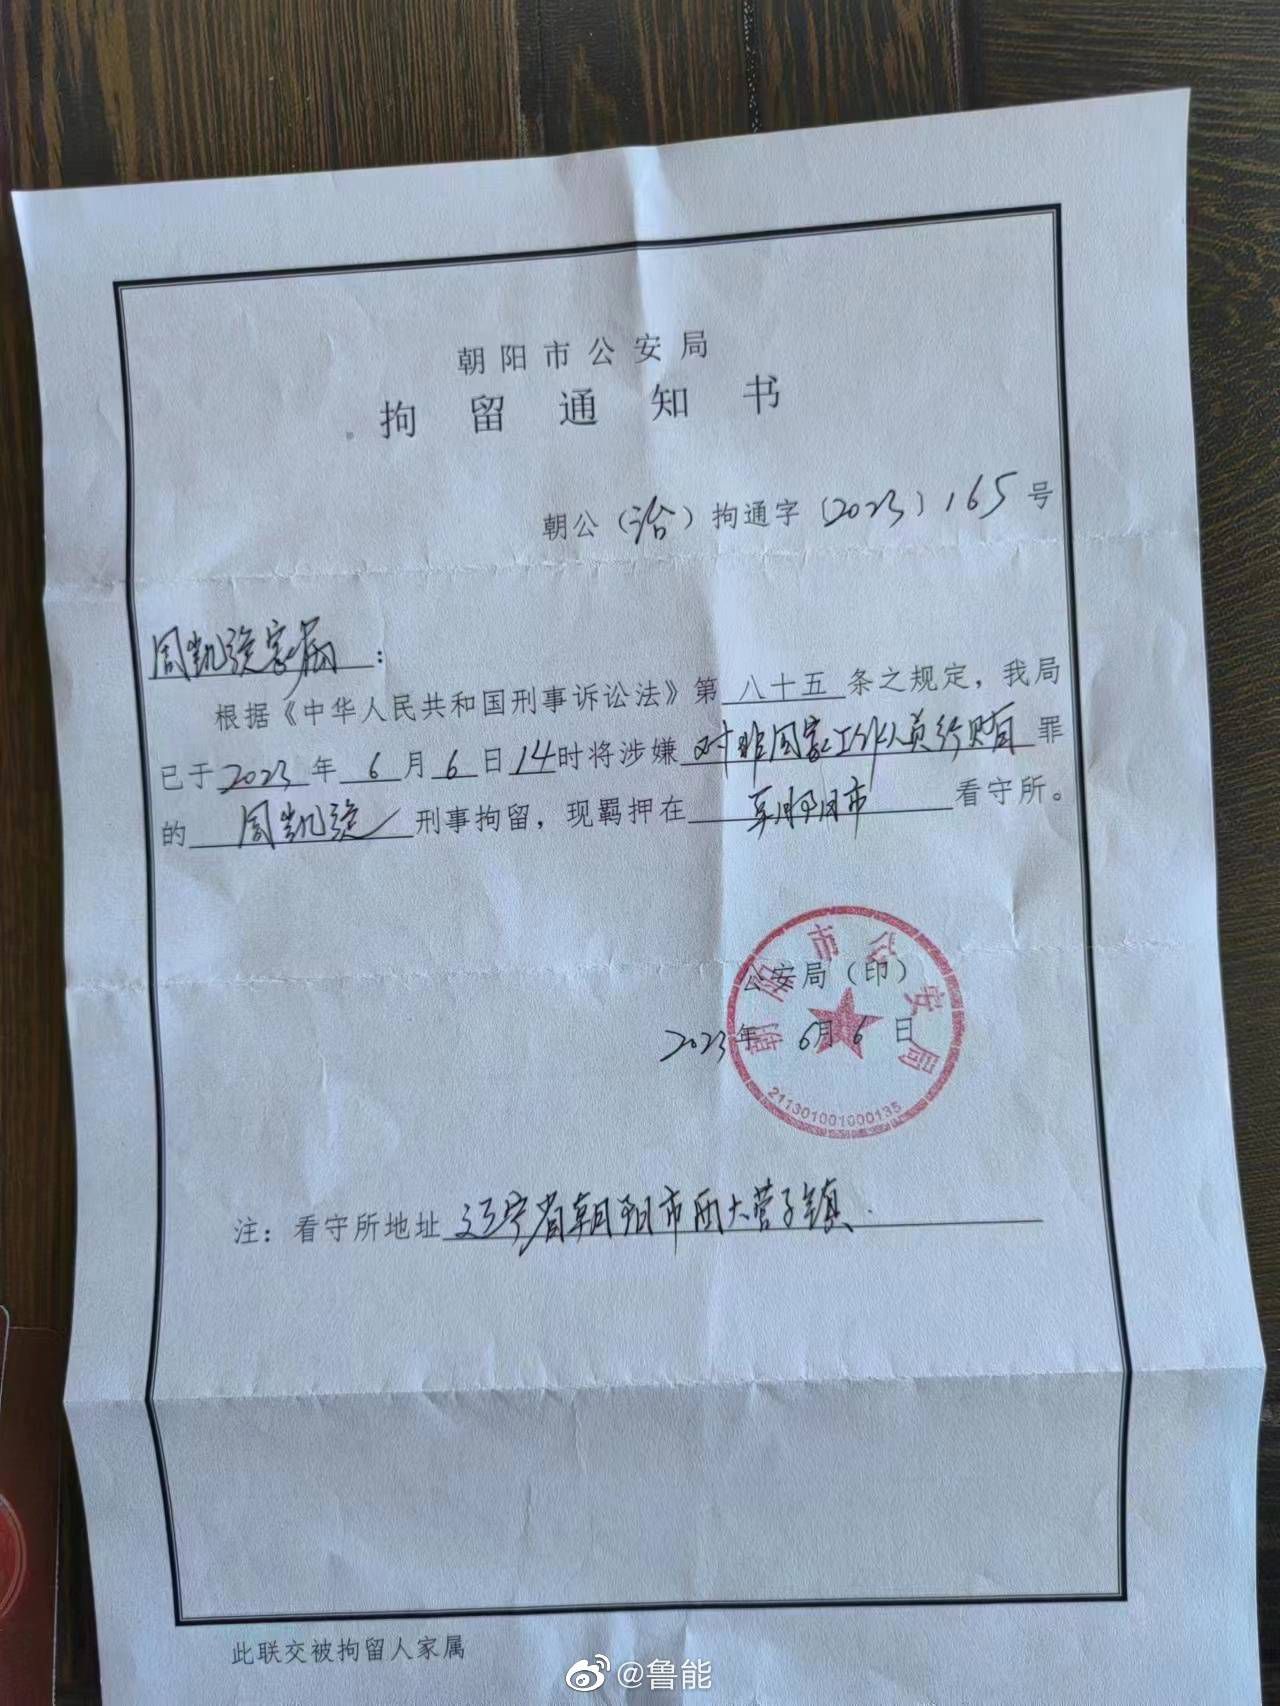 朝阳市公安局
拘留通知书
朝公(治)拘通字〔2023〕165号
周凯旋家属:
根据《中华人民共和国刑事诉讼法》第八十五条之规定,我局
已于2023年6月6日14时将涉嫌对非国家工作人员行贿罪
的周凯旋刑事拘留,现羁押在朝阳市看守所。
朝阳市公安局
公安局(印)
2023年6月6日
211301001000135
注:看守所地址辽宁省朝阳市西大营子镇.
此联交被拘留人家属
@鲁能